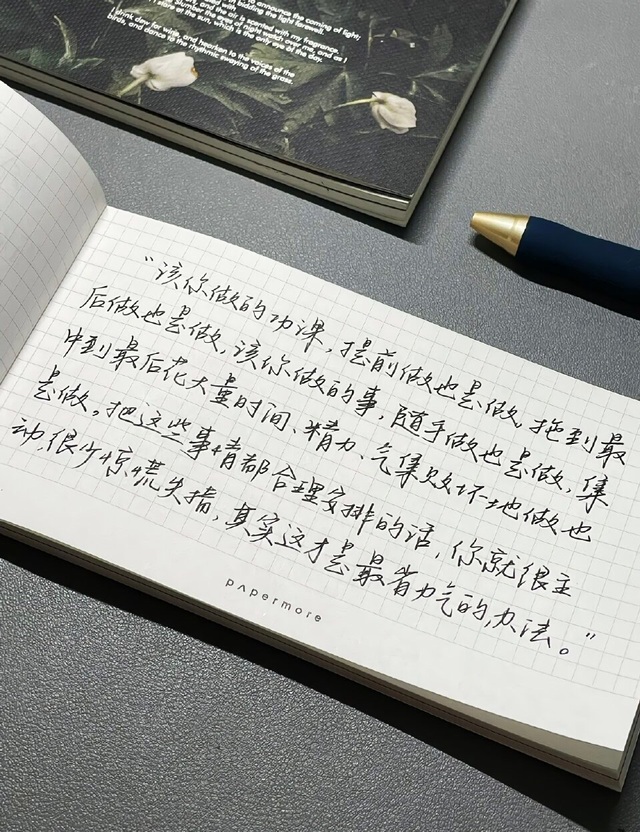 announce the coming of light,
bidding the light farewell.
and the air is scented with my fragrance.
the eyes of night watch over me, and as I
at the sun, which is the only eye of the day.
I drink dew for wine, and hearken to the voices of the
birds, and dance to the rhythmic swaying of the grass.
“该你做的功课，提前做也是做，拖到最
后做也是做，该你做的事，随手做也是做，集
中到最后花大量时间、精力、气集败坏地做也
是做。把这些事情都合理安排的话，你就很主
动，很少惊慌失措，其实这才是最省力气的办法。”
papermore